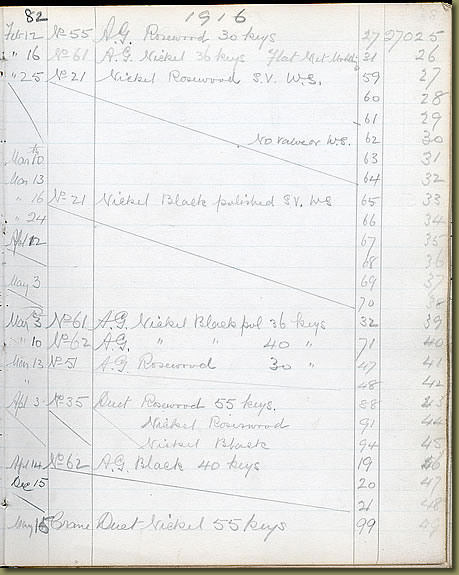 82 1916
Feb 12 No 55 A.G. Rosewood 30 keys 27 27025
" 16 No 61 A.G. Nickel 36 keys Flat Met 31 26
" 25 No 21 Nickel Rosewood S.V. W.S. 59 27
60 28
61 29
No valve or W.S. 62 30
Mar 10th 63 31
Mar 13 64 32
" 16 No 21 Nickel Black polished S.V. W.S 65 33
" 24 66 34
Apl 12 67 35
68 36
May 3 69 37
70 38
May 3 No 61 A.G. Nickel Black pol 36 keys 32 39
" 10 No 62 A.G. " " 40 " 71 40
Mar 13 No 51 A.G. Rosewood 30 " 47 41
" 48 42
Apl 3 No 35 Duet Rosewood 55 keys. 88 43
Nickel Rosewood 91 44
Nickel Black 94 45
Apl 14 No 62 A.G. Black 40 keys 19 46
Dec 15 20 47
21 48
May 15 Crane Duet Nickel 55 keys 99 49